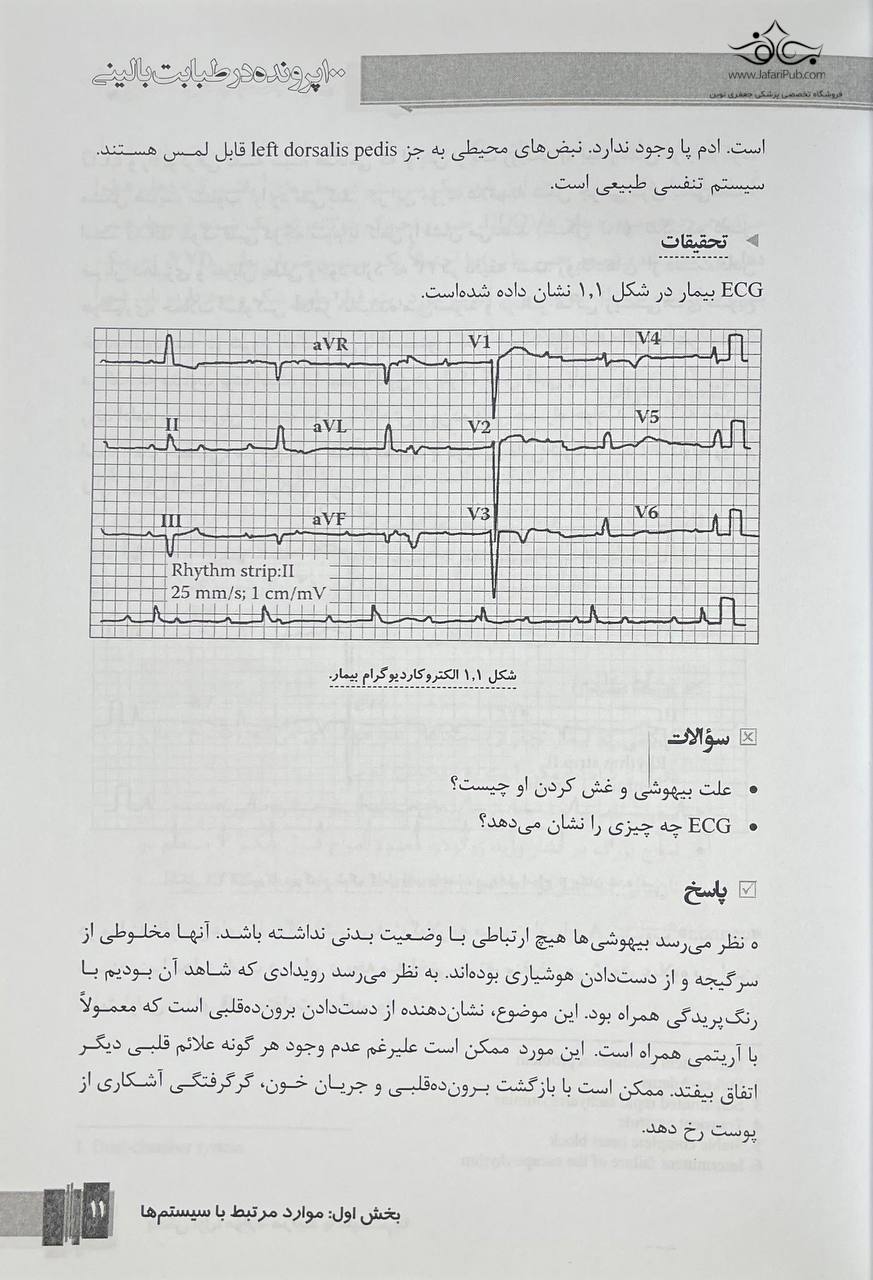 ۱۰۰پرونده در طبابت بالینی
www.JafariPub.com
فروشگاه تخصصی پزشکی جعفری نوین
است. ادم پا وجود ندارد. نبض‌های محیطی به جز left dorsalis pedis قابل لمس هستند.
سیستم تنفسی طبیعی است.
تحقیقات
ECG بیمار در شکل ۱,۱ نشان داده شده‌است.
aVR V1 V4
II aVL V2 V5
III aVF V3 V6
Rhythm strip:II
25 mm/s; 1 cm/mV
شکل ۱,۱ الکتروکاردیوگرام بیمار.
سؤالات
• علت بیهوشی و غش کردن او چیست؟
• ECG چه چیزی را نشان می‌دهد؟
پاسخ
ه نظر می‌رسد بیهوشی‌ها هیچ ارتباطی با وضعیت بدنی نداشته باشد. آنها مخلوطی از
سرگیجه و از دست‌دادن هوشیاری بوده‌اند. به نظر می‌رسد رویدادی که شاهد آن بودیم با
رنگ‌پریدگی همراه بود. این موضوع، نشان‌دهنده از دست‌دادن برون‌ده‌قلبی است که معمولاً
با آریتمی همراه است. این مورد ممکن است علیرغم عدم وجود هر گونه علائم قلبی دیگر
اتفاق بیفتد. ممکن است با بازگشت برون‌ده‌قلبی و جریان خون، گرگرفتگی آشکاری از
پوست رخ دهد.
بخش اول: موارد مرتبط با سیستم‌ها
۱۱